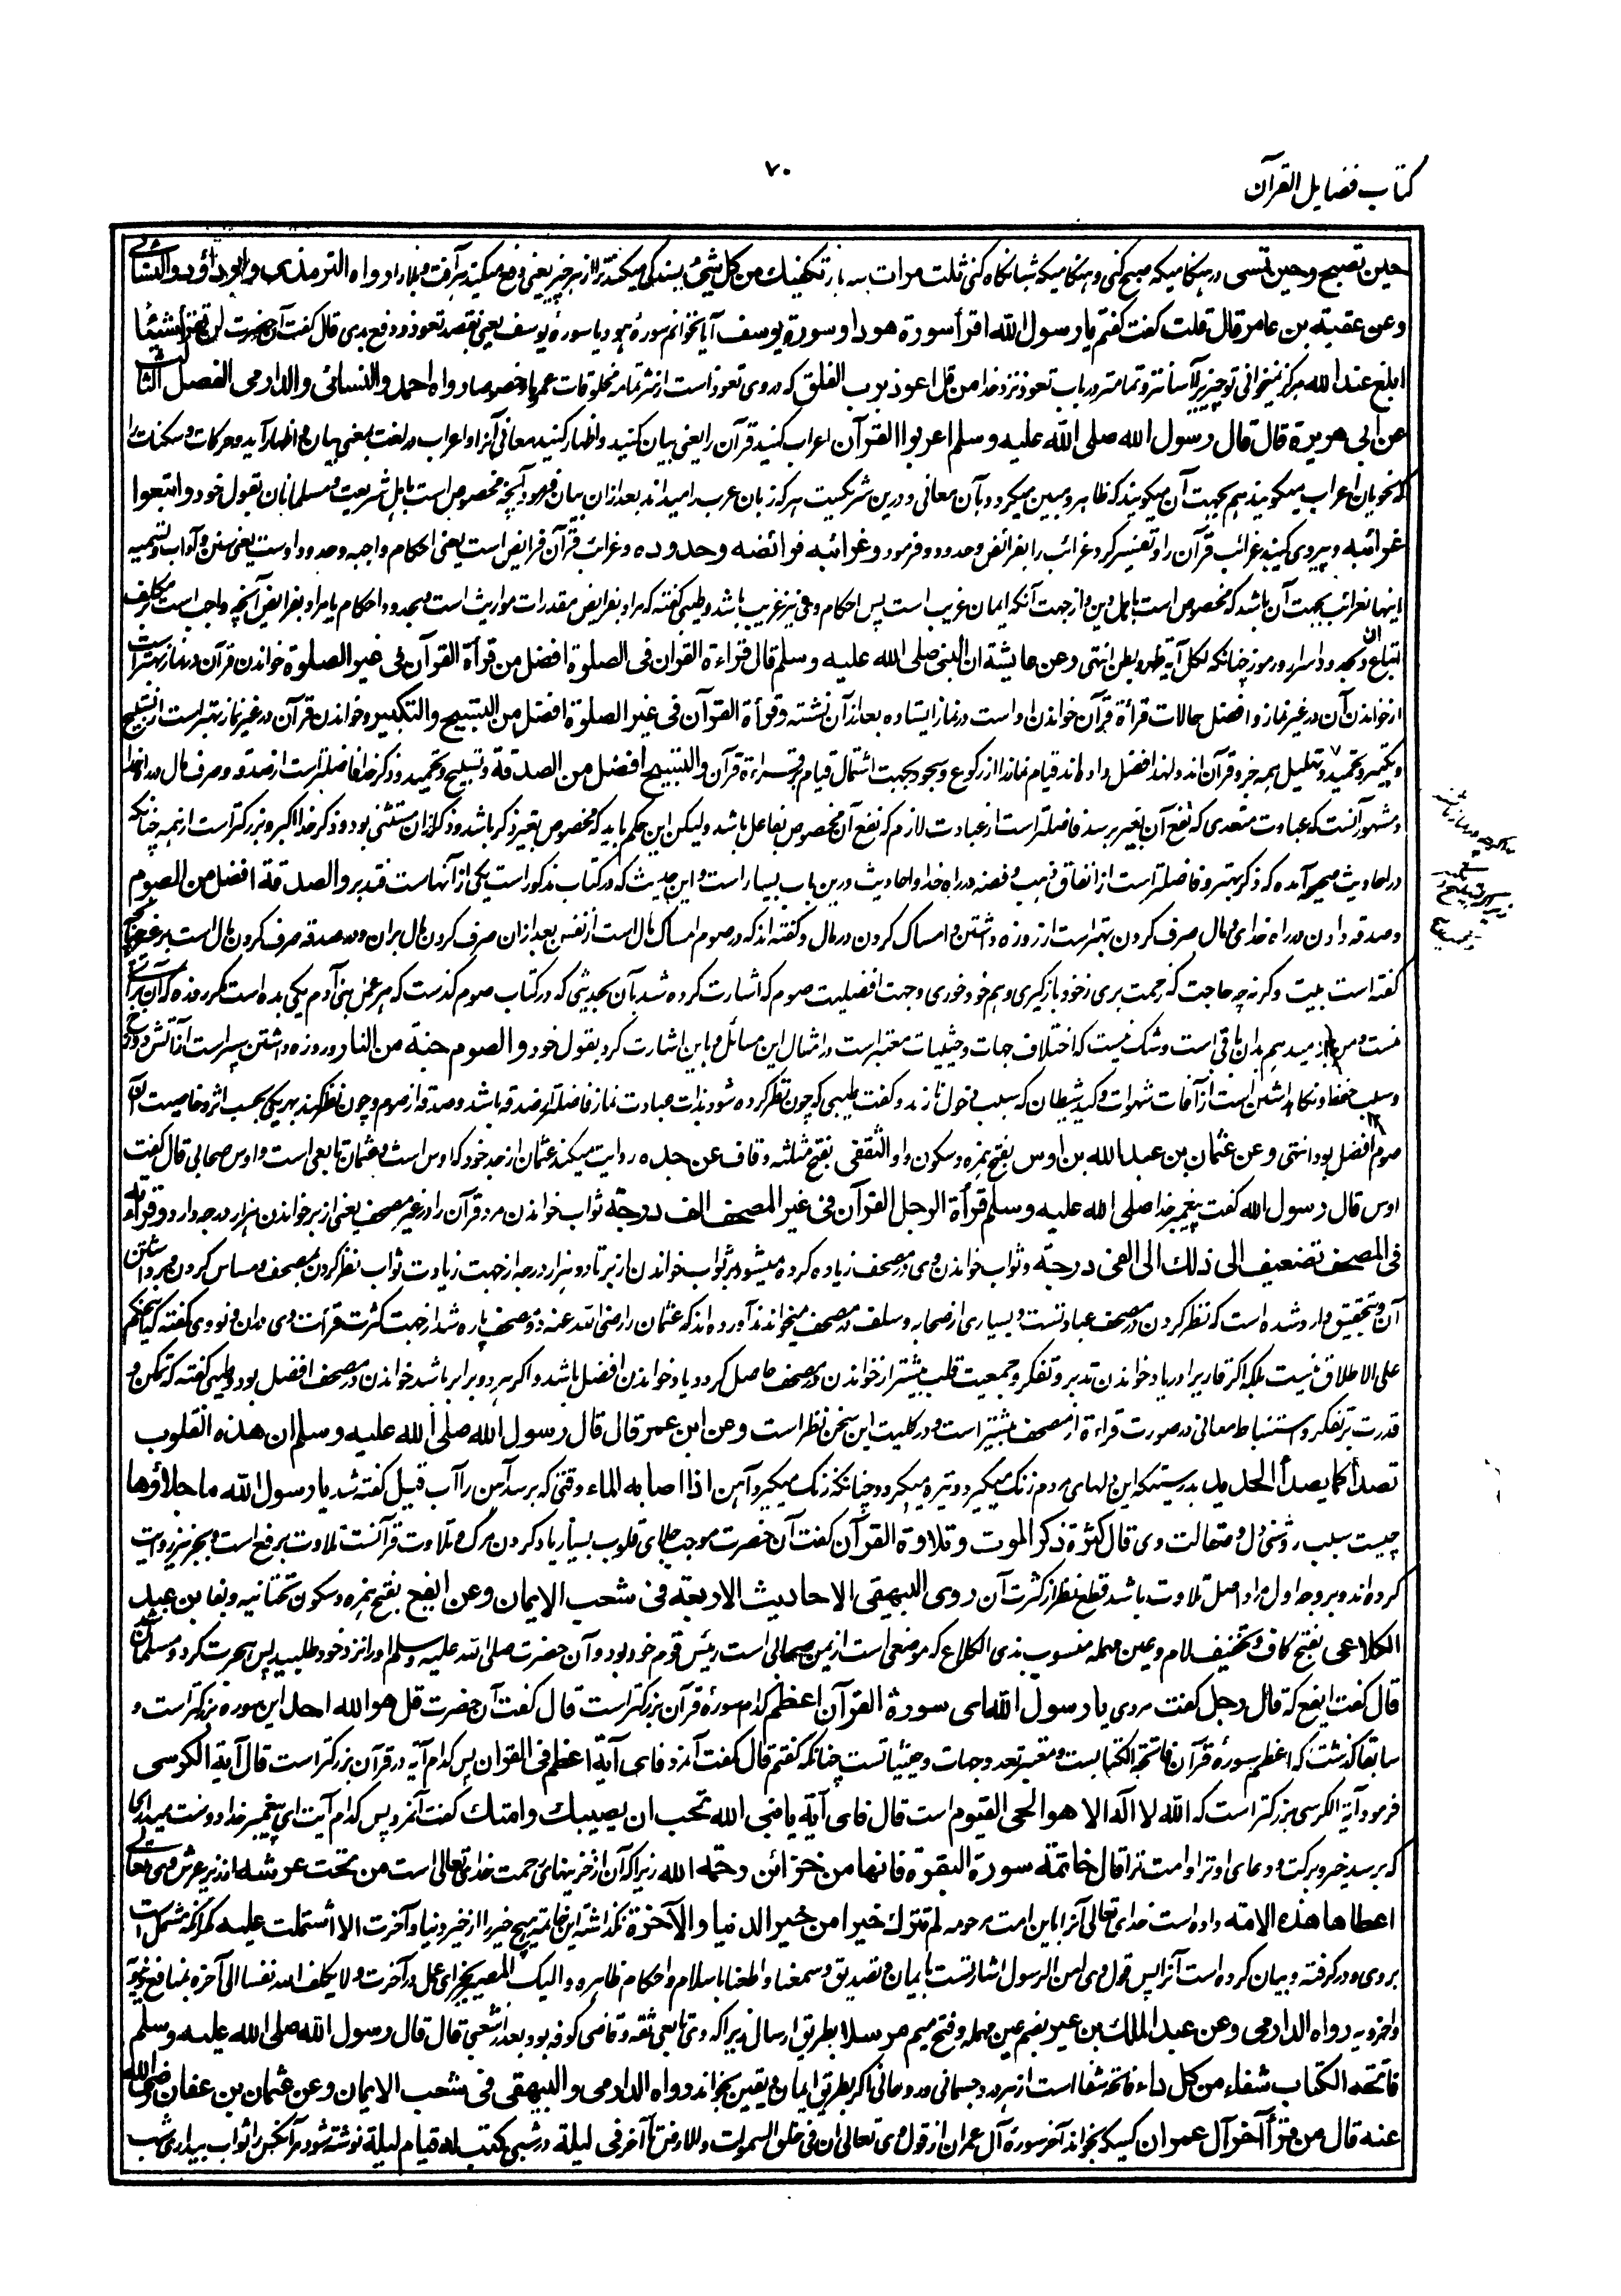 کتاب فضایل القرآن
۷۰
حین تصبح وحین تمسی در هنگامیکه صبح کنی و هنگامیکه شبانگاه کنی ثلث مرات سه بار تکفیك من کل شیئ بسندگی میکند ترا از هر چیز یعنی دفع میکند هر آفت و بلا را رواه الترمذی وابو داؤد والنسائی
وعن عقبة بن عامر قال قلت گفت گفتم یا رسول الله اقرأ سورة هود او سورة یوسف آیا بخوانم سورۀ هود یا سورۀ یوسف یعنی بقصد تعوذ و دفع بدی قال گفت آن حضرت لن تقرأ شیئا
ابلغ عند الله هرگز نمیخوانی تو چیزیرا رساننده تر و تمامتر در باب تعوذ نزد خدا من قل اعوذ برب الفلق که در وی تعوذ است از شر تمامه مخلوقات عموما و خصوصا رواه احمد والنسائی والدارمی الفصل الثالث
عن ابی هریرة قال قال رسول الله صلی الله علیه وسلم اعربوا القرآن اعراب کنید قرآن را یعنی بیان کنید و اظهار کنید معانی آنرا و اعراب در لغت بمعنی بیان و اظهار آید و حرکات و سکنات را
که نحویان اعراب میگویند هم بجهت آن میگویند که ظاهر و مبین میگردد بآن معانی و درین شریکست هرکه زبان عرب را میداند بعد ازان بیان فرمود آنچه مخصوص است باهل شریعت و مسلمانان بقول خود واتبعوا
غرائبه و پیروی کنید غرائب قرآن را و تفسیر کرد غرائب را بفرائض و حدود و فرمود وغرائبه فرائضه وحدوده و غرائب قرآن فرائض است یعنی احکام واجبه و حدود اوست یعنی سنن و آداب و تسمیه
اینها بغرائب بجهت آن باشد که مخصوص است باهل دین و از جهت آنکه ایمان غریب است پس احکام وی نیز غریب باشد و طیبی گفته که مراد بفرایض مقدرات مواریث است و بحدود احکام یا مراد بفرایض آنچه واجب است بر مکلف
اتباع آن و بحدود اسرار و رموز چنانکه لکل آیة ظهر و بطن انتهی وعن عایشة ان النبی صلی الله علیه وسلم قال قراءة القرآن فی الصلوة افضل من قرأة القرآن فی غیر الصلوة خواندن قرآن در نماز بهتر است
از خواندن آن در غیر نماز و افضل حالات قرأة قرآن خواندن او است در نماز ایستاده بعد ازآن نشسته وقرأة القرآن فی غیر الصلوة افضل من التسبیح والتکبیر و خواندن قرآن در غیر نماز بهتر است از تسبیح
و تکبیر و تحمید و تهلیل همه جزو قرآن اند و لهذا افضل داده اند قیام نماز را از رکوع و سجود بجهت اشتمال قیام بر قراءة قرآن والتسبیح افضل من الصدقة و تسبیح و تحمید و ذکر خدا فاضلتر است از صدقه و صرف مال در راه خدا
و مشهور آنست که عبادت متعدی که نفع آن بغیر برسد فاضلتر است از عبادت لازم که نفع آن مخصوص بفاعل باشد ولیکن این حکم باید که مخصوص بغیر ذکر باشد و ذکر ازان مستثنی بود و ذکر خدا اکبر و بزرگتر است از همه چنانکه
در احادیث صحیحه آمده که ذکر بهتر و فاضلتر است از انفاق ذهب و فضه در راه خدا و احادیث درین باب بسیار است و این حدیث که در کتاب مذکور است یکی از آنهاست فتدبر والصدقة افضل من الصوم
و صدقه دادن در راه خدای و مال صرف کردن بهتر است از روزه داشتن و امساک کردن در مال و گفته اند که در صوم امساک مال است از نفس بعد ازان صرف کردن مال بران و در صدقه صرف کردن مال است بر غیر
گفته است بیت وگرنه چه حاجت که زحمت بری زخود بازگیری و هم خود خوری و جهت افضلیت صوم که اشارت کرده شد بآن بحدیثی که در کتاب صوم گذست که هر عمل بنی آدم یکی بده است مگر روزه که آن برای
منست و من جزا میدهم بدان باقی است و شک نیست که اختلاف جهات و حیثیات معتبر است در امثال این مسائل و باین اشارت کرد بقول خود والصوم جنة من النار و روزه داشتن سپر است از آتش دوزخ
و سبب حفظ و نگاهداشتن است از آفات شهوات و کید شیطان که سبب دخول نارند و گفت طیبی که چون نظر کرده شود بذات عبادت نماز فاضلتر از صدقه باشد و صدقه از صوم و چون نظر کنند بهر یکی بحسب اثر و خاصیت آن
صوم افضل بود انتهی وعن عثمان بن عبدالله بن اوس بفتح همزه و سکون واو الثقفی بفتح مثلثه و قاف عن جده روایت میکند عثمان از جد خود که اوس است و عثمان تابعی است و اوس صحابی قال گفت
اوس قال رسول الله گفت پیغمبر خدا صلی الله علیه وسلم قرأة الرجل القرآن فی غیر المصحف الف درجة ثواب خواندن مرد قرآن را در غیر مصحف یعنی از بر خواندن هزار درجه دارد وقرأته
فی المصحف تضعیف الی ذلك الی الفی درجة و ثواب خواندن وی در مصحف زیاده کرده میشود بر ثواب خواندن از بر تا دو هزار درجه از جهت زیادت ثواب نظر کردن بمصحف و مساس کردن و برداشتن
آن و بتحقیق وارد شده است که نظر کردن در مصحف عبادتست و بسیاری از صحابه و سلف در مصحف میخواندند آورده اند که عثمان را رضی الله عنه دو مصحف پاره شد از جهت کثرت قرأت وی دران و نووی گفته که این حکم
علی الاطلاق نیست بلکه اگر قاریرا در یاد خواندن تدبر و تفکر و جمعیت قلب بیشتر از خواندن در مصحف حاصل گردد یاد خواندن افضل باشد و اگر هر دو برابر باشد خواندن در مصحف افضل بود و طیبی گفته که تمکن و
قدرت بر تفکر و استنباط معانی در صورت قراءة از مصحف بیشتر است و در کلیت این سخن نظر است وعن ابن عمر قال قال رسول الله صلی الله علیه وسلم ان هذه القلوب
تصدأ کما یصدأ الحدید بدرستیکه این دلهای مردم زنگ میگیرد و تیره میگردد چنانکه زنگ میگیرد آهن اذا اصابه الماء وقتی که برسد آهن را آب قیل گفته شد یا رسول الله ما جلاؤها
چیست سبب روشنی دل و صقالت وی قال کثرة ذکر الموت وتلاوة القرآن گفت آن حضرت موجب جلای قلوب بسیار یاد کردن مرگ و تلاوت قرآنست تلاوت برفع است و بجر نیز روایت
کرده اند و بر وجه اول مراد اصل تلاوت باشد قطع نظر از کثرت آن روی البیهقی الاحادیث الاربعة فی شعب الایمان وعن ایفع بفتح همزه و سکون تحتانیه و بفا بن عبد
الکلاعی بفتح کاف و تخفیف لام و عین مهمله منسوب بذی الکلاع که موضعی است از یمن صحابی است رئیس قوم خود بود و آن حضرت صلی الله علیه وسلم او را نزد خود طلبید پس هجرت کرد و مسلمان شد
قال گفت ایفع که قال رجل گفت مردی یا رسول الله ای سورة القرآن اعظم کدام سورۀ قرآن بزرگتر است قال گفت آن حضرت قل هو الله احد این سوره بزرگتر است و
سابقا گذشت که اعظم سورۀ قرآن فاتحة الکتابست و معتبر تعدد جهات و حیثیاتست چنانکه گفتم قال گفت آنمرد فای آیة اعظم فی القرآن پس کدام آیه در قرآن بزرگتر است قال آیة الکرسی
فرمود آیة الکرسی بزرگتر است که الله لا اله الا هو الحی القیوم است قال فای آیة یا نبی الله تحب ان یصیبك وامتك گفت آنمرد پس کدام آیت ای پیغمبر خدا دوست میداری
که برسد خیر و برکت و دعای او ترا و امت ترا قال خاتمة سورة البقرة فانها من خزائن رحمة الله زیرا که آن از خزینهای رحمت خدای تعالی است من تحت عرشه از زیر عرش وی تعالی
اعطاها هذه الامة داده است خدای تعالی آنرا باین امت مرحومه لم تترك خیرا من خیر الدنیا والآخرة نگذاشته این خاتمه هیچ خیر را از خیر دنیا و آخرت الا اشتملت علیه مگر آنکه مشتمل است
بروی و در گرفته و بیان کرده است آنرا پس قول وی امن الرسول اشارتست بایمان و تصدیق و سمعنا و اطعنا باسلام و احکام ظاهره و الیک المصیر بجزای عمل در آخرت و لا یکلف الله نفسا الی آخره بمنافع دنیویه
و اخرویه رواه الدارمی وعن عبد الملك بن عمیر بضم عین مهمله و فتح میم مرسلا بطریق ارسال زیرا که وی تابعی ثقه و قاضی کوفه بود بعد از شعبی قال قال رسول الله صلی الله علیه وسلم
فاتحة الکتاب شفاء من کل داء فاتحه شفا است از هر درد جسمانی و روحانی اگر بطریق ایمان و یقین بخواند رواه الدارمی والبیهقی فی شعب الایمان وعن عثمان بن عفان رضی الله
عنه قال من قرأ آخر آل عمران کسیکه بخواند آخر سورة آل عمران از قول وی تعالی ان فی خلق السموات والارض تا آخر فی لیلة در شبی کتب له قیام لیلة نوشته شود مر آنکس را ثواب بیداری شب